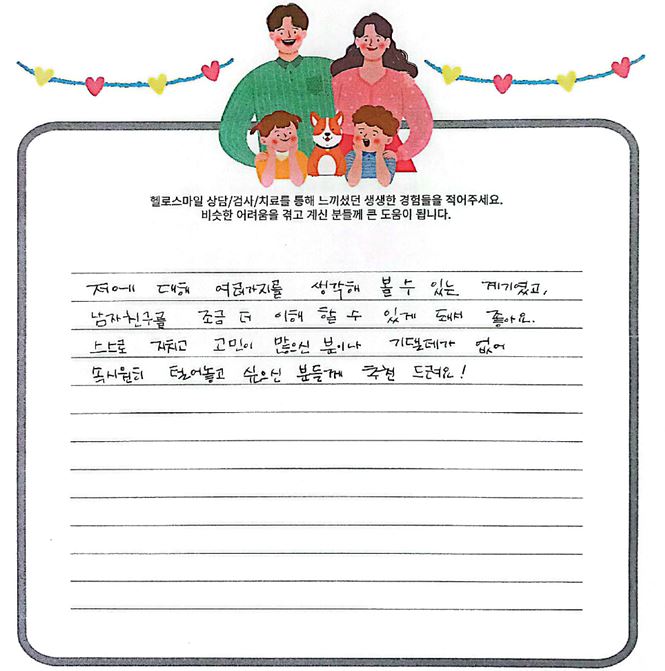 헬로스마일 상담/검사/치료를 통해 느끼셨던 생생한 경험들을 적어주세요.
비슷한 어려움을 겪고 계신 분들께 큰 도움이 됩니다.
저에 대해 여러가지를 생각해 볼 수 있는 계기였고,
남자친구를 조금 더 이해 할 수 있게 돼서 좋아요.
스스로 지치고 고민이 많으신 분이나 기댈데가 없어
속시원히 털어놓고 싶으신 분들께 추천 드려요!